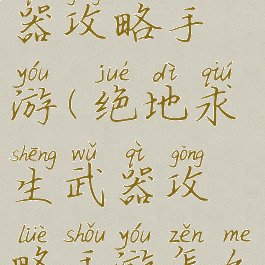 器攻略手
yóu jué dì qiú
游(绝地求
shēng wǔ qì gōng
生武器攻
lüè shǒu yóu zěn me
略手游怎么